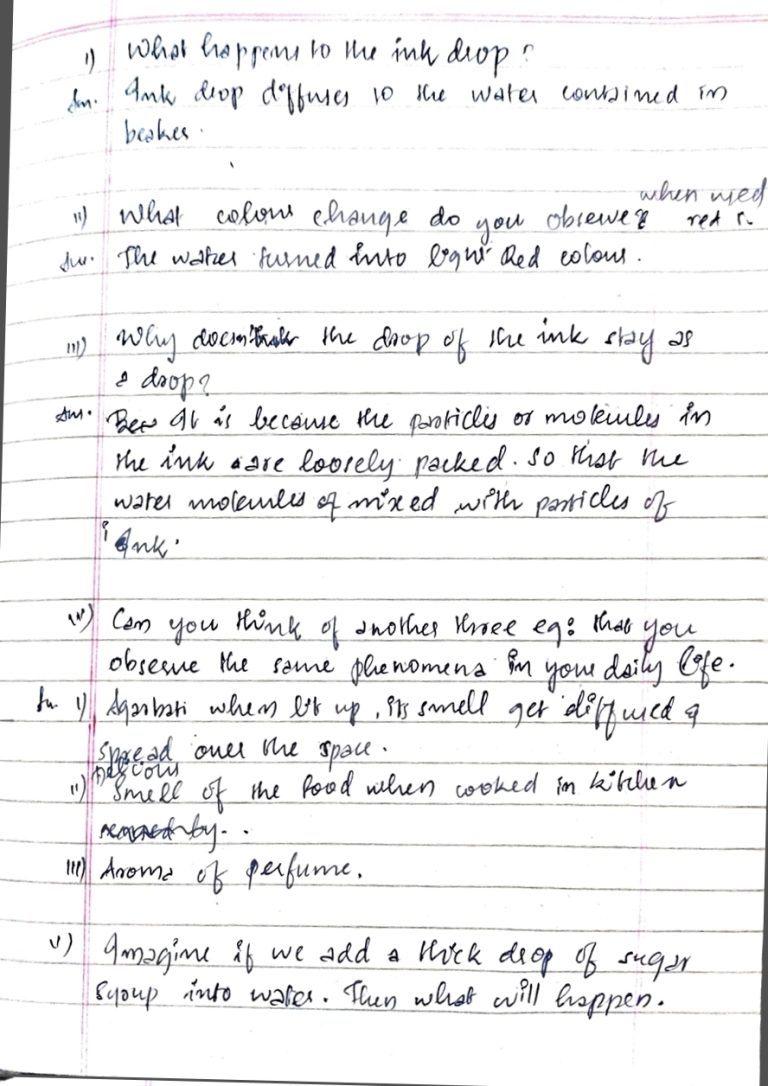 i) What happens to the ink drop?
Ans. Ink drop diffuses to the water contained in
beaker.
when used
ii) What colour change do you observe? red
Ans. The water turned into light Red colour.
iii) Why doesn't the drop of the ink stay as
a drop?
Ans. It is because the particles or molecules in
the ink are loosely packed. So that the
water molecules of mixed with particles of
ink.
iv) Can you think of another three eg: that you
observe the same phenomena in your daily life.
An. i) Agarbati when lit up, its smell get diffused &
spread over the space.
ii) Smell of the food when cooked in kitchen
iii) Aroma of perfume.
v) Imagine if we add a thick drop of sugar
syoup into water. Then what will happen.